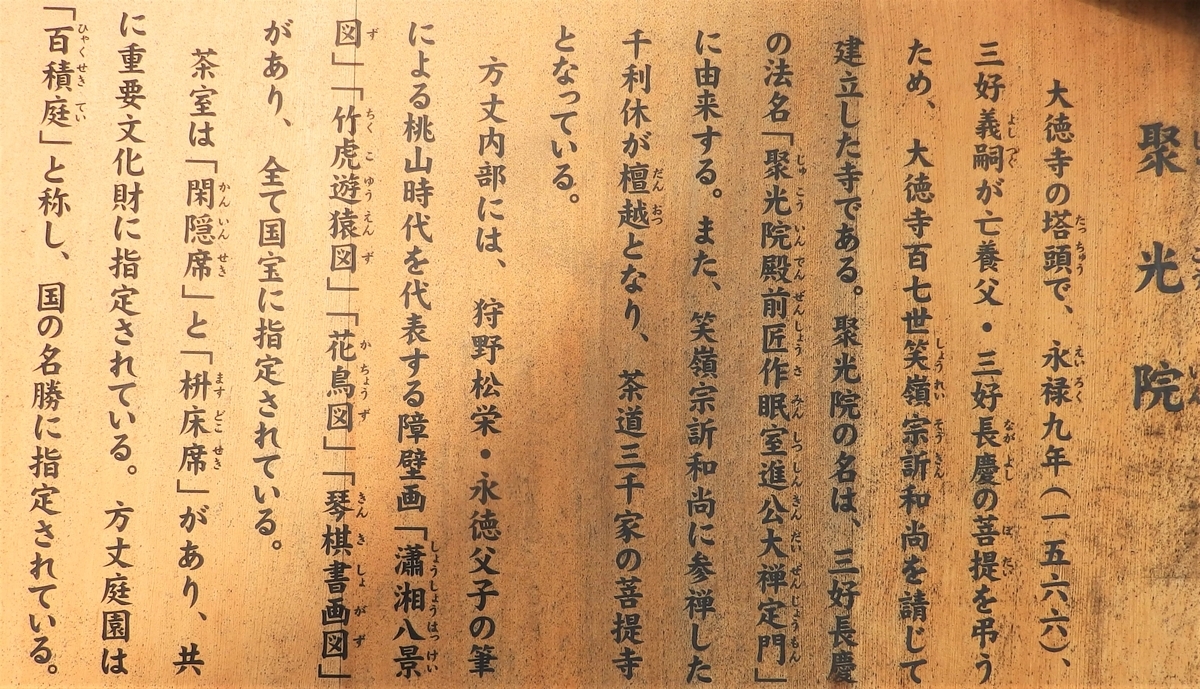 聚光院
大徳寺の塔頭で、永禄九年（一五六六）、
三好義嗣が亡養父・三好長慶の菩提を弔う
ため、大徳寺百七世笑嶺宗訢和尚を請じて
建立した寺である。聚光院の名は、三好長慶
の法名「聚光院殿前匠作眠室進公大禅定門」
に由来する。また、笑嶺宗訢和尚に参禅した
千利休が檀越となり、茶道三千家の菩提寺
となっている。
方丈内部には、狩野松栄・永徳父子の筆
による桃山時代を代表する障壁画「瀟湘八景
図」「竹虎遊猿図」「花鳥図」「琴棋書画図」
があり、全て国宝に指定されている。
茶室は「閑隠席」と「枡床席」があり、共
に重要文化財に指定されている。方丈庭園は
「百積庭」と称し、国の名勝に指定されている。